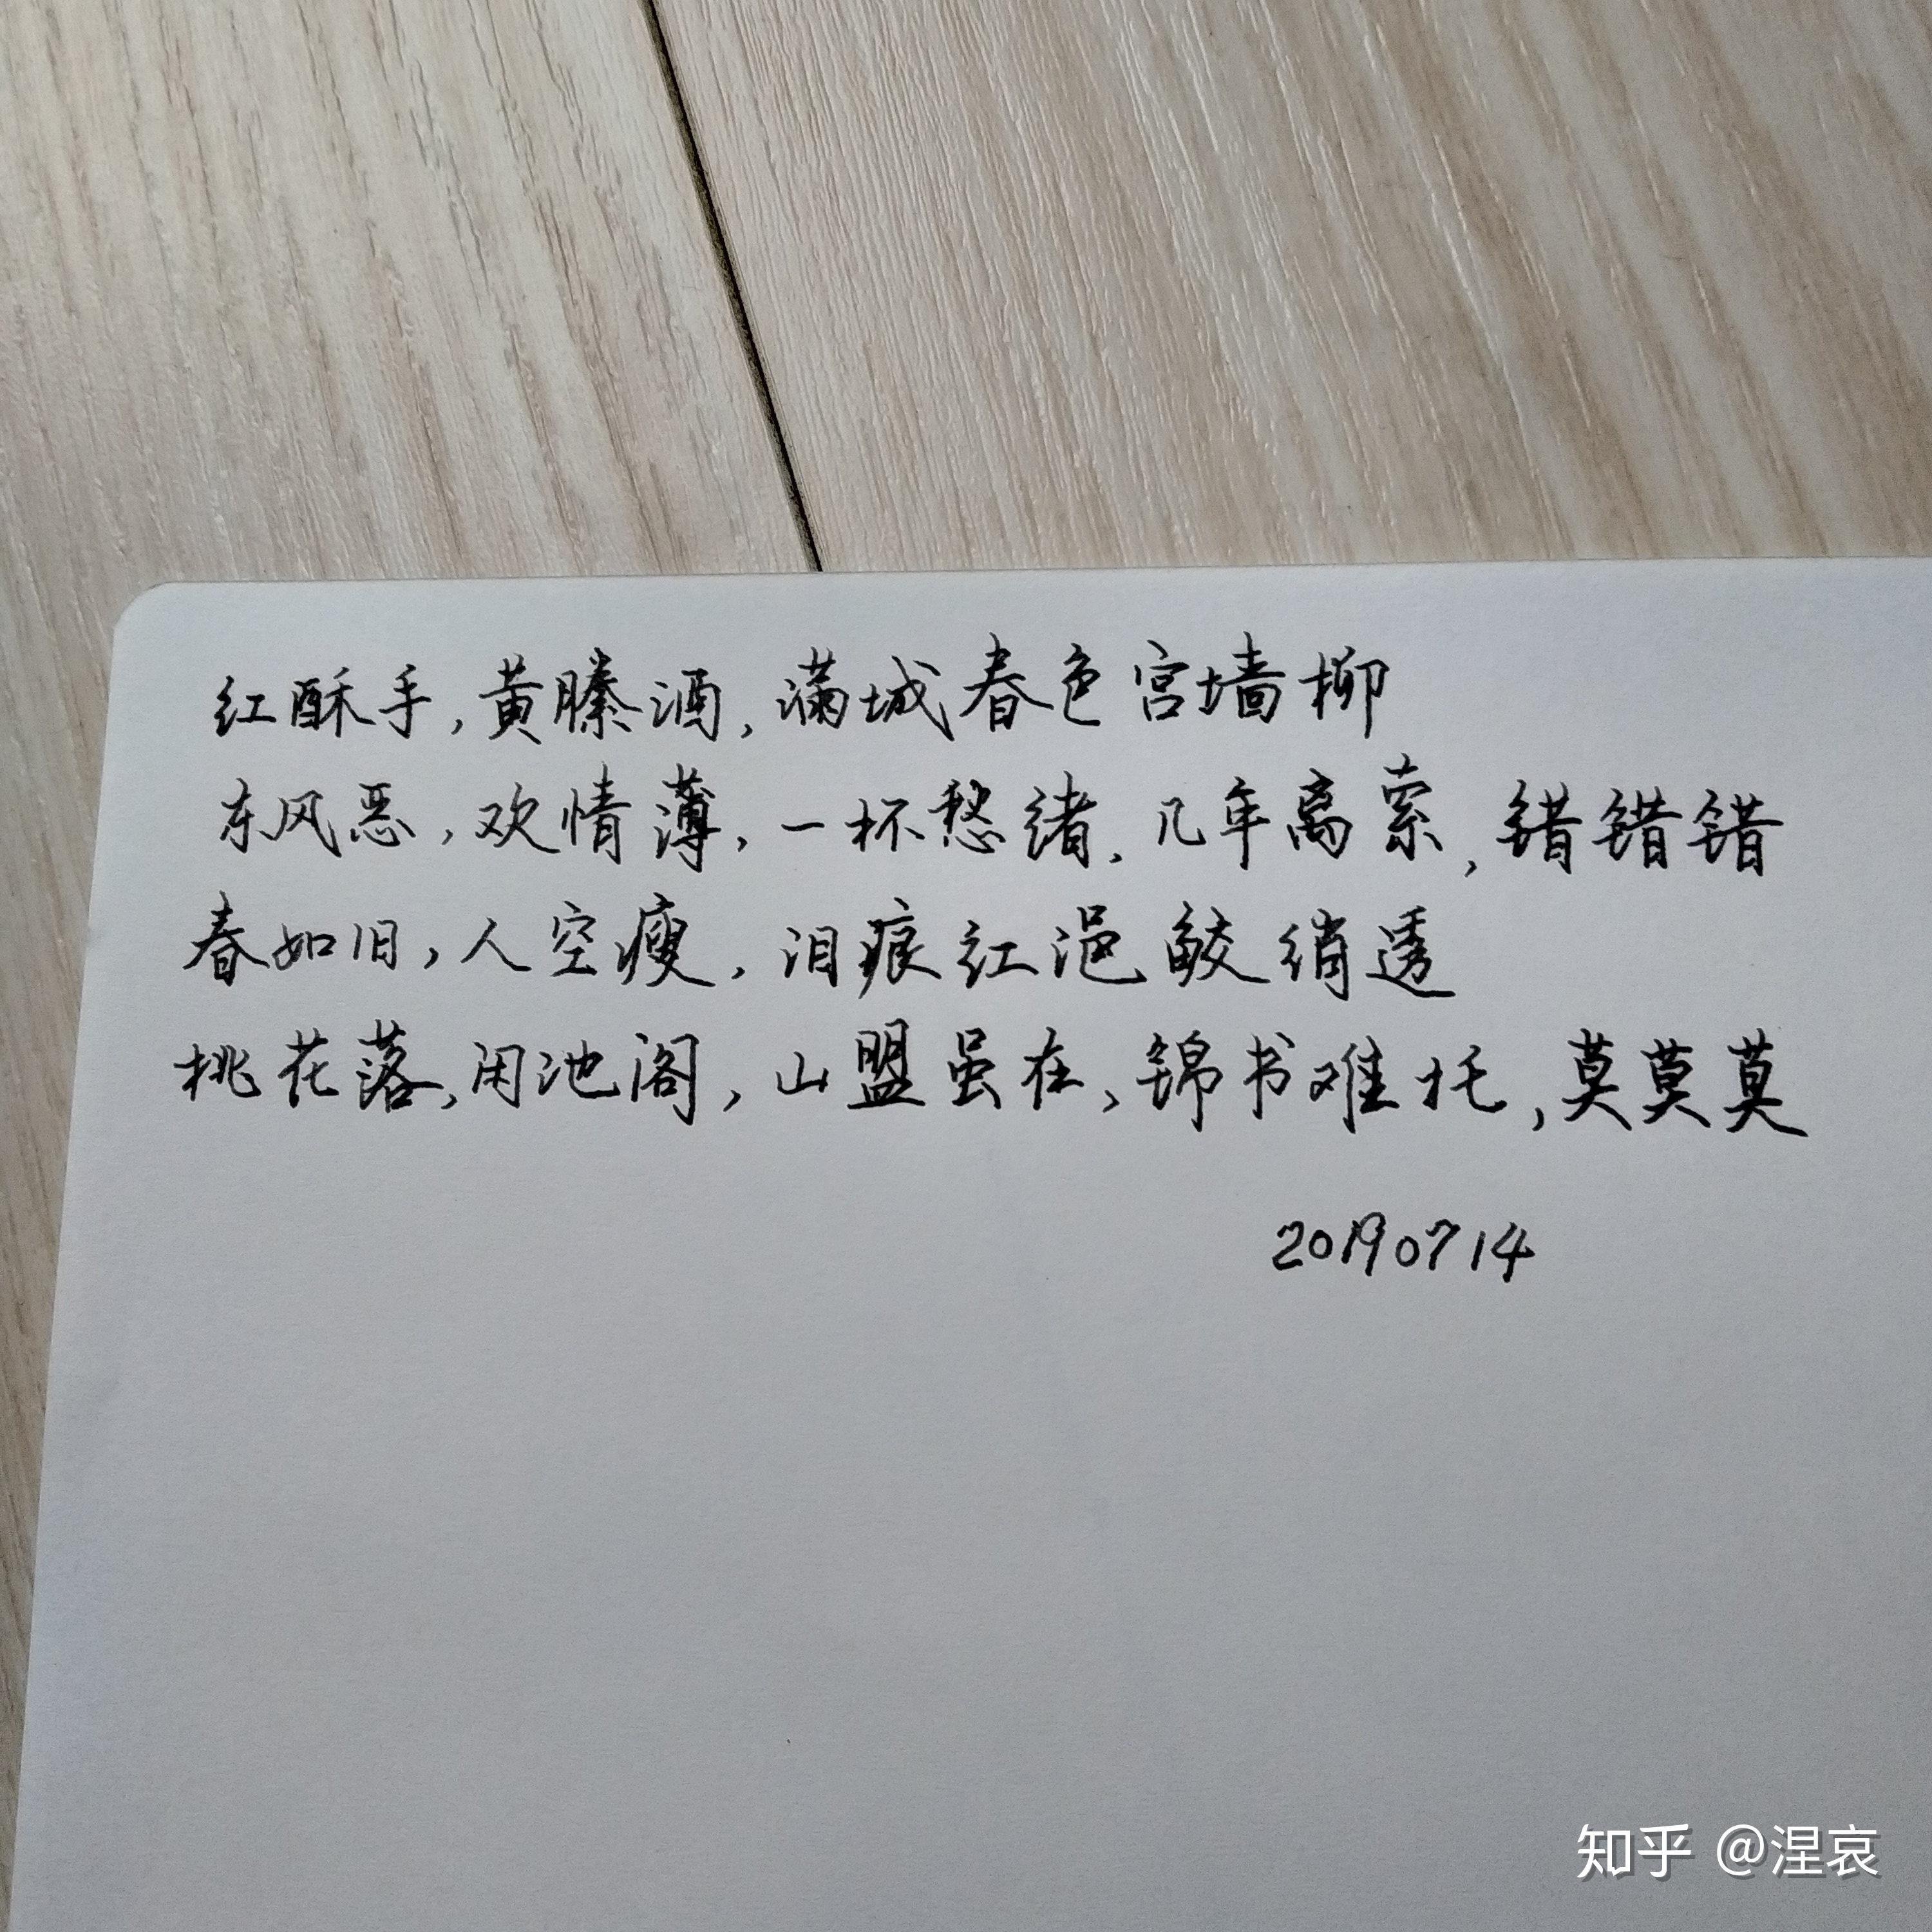 红酥手,黄縢酒,满城春色宫墙柳
东风恶,欢情薄,一杯愁绪,几年离索,错错错
春如旧,人空瘦,泪痕红浥鲛绡透
桃花落,闲池阁,山盟虽在,锦书难托,莫莫莫
20190714
知乎 @涅哀